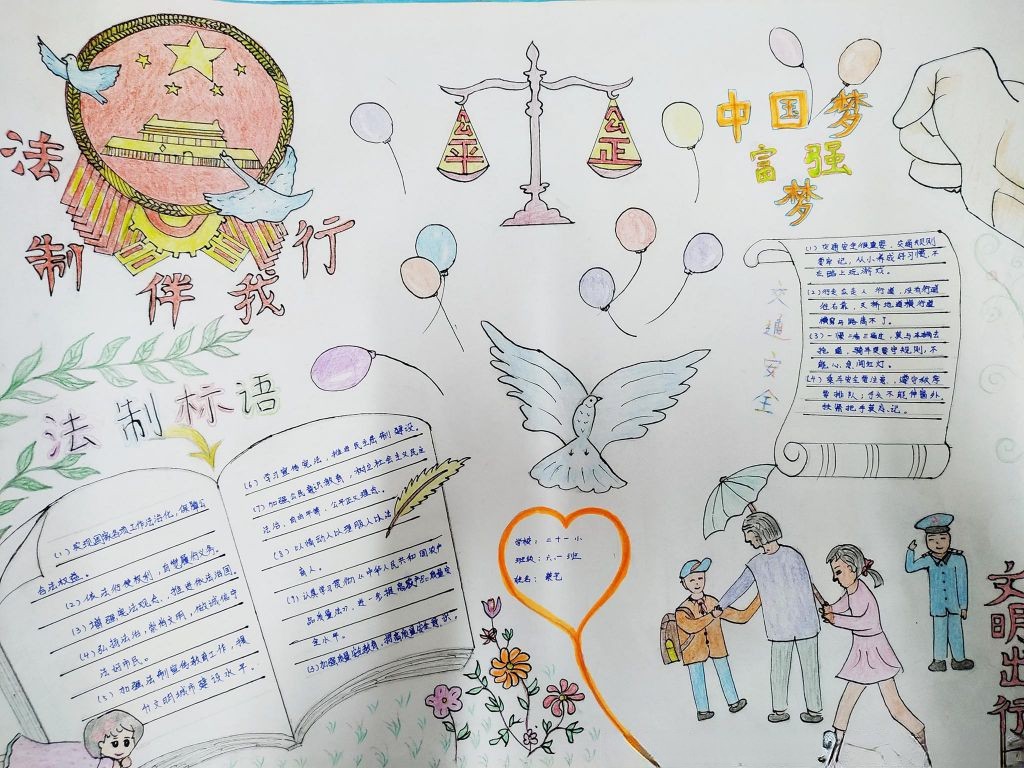 法
制
伴 我
行
公
平
公
正
中国梦
富强
梦
交通安全
(1) 交通安全很重要,交通规则
要牢记,从小养成好习惯,不
在路上玩游戏。
(2) 行走应走人行道,没有行道
往右靠,天桥地道横行道
横穿马路离不了。
(3) 一慢二看三通过,莫与车辆去
抢道,骑车更要守规则,不
能心急闯红灯。
(4) 乘车安全需注意,遵守秩序
要排队;手头不能伸窗外
扶紧把手莫忘记。
法制标语
(1) 实现国家各项工作法治化,保障公
合法权益。
(2) 依法行使权利,自觉履行义务。
(3) 增强宪法观念,推进依法治国。
(4) 弘扬法治,崇尚文明,做诚信守
法好市民。
(5) 加强法制宣传教育工作,提
升文明城市建设水平.
(6) 学习宣传宪法,推进民主法制建设。
(7) 加强公民意识教育,树立社会主义民主
法治、自由平等、公平正义理念。
(8) 以情动人以理服人以法
育人。
(9) 认真学习贯彻《中华人民共和国农产
品质量法》,进一步提高农产品质量安
全水平。
加强质量安全教育,提高质量安全意识。
学校:二十一小
班级:六.一班
姓名:
文明出行